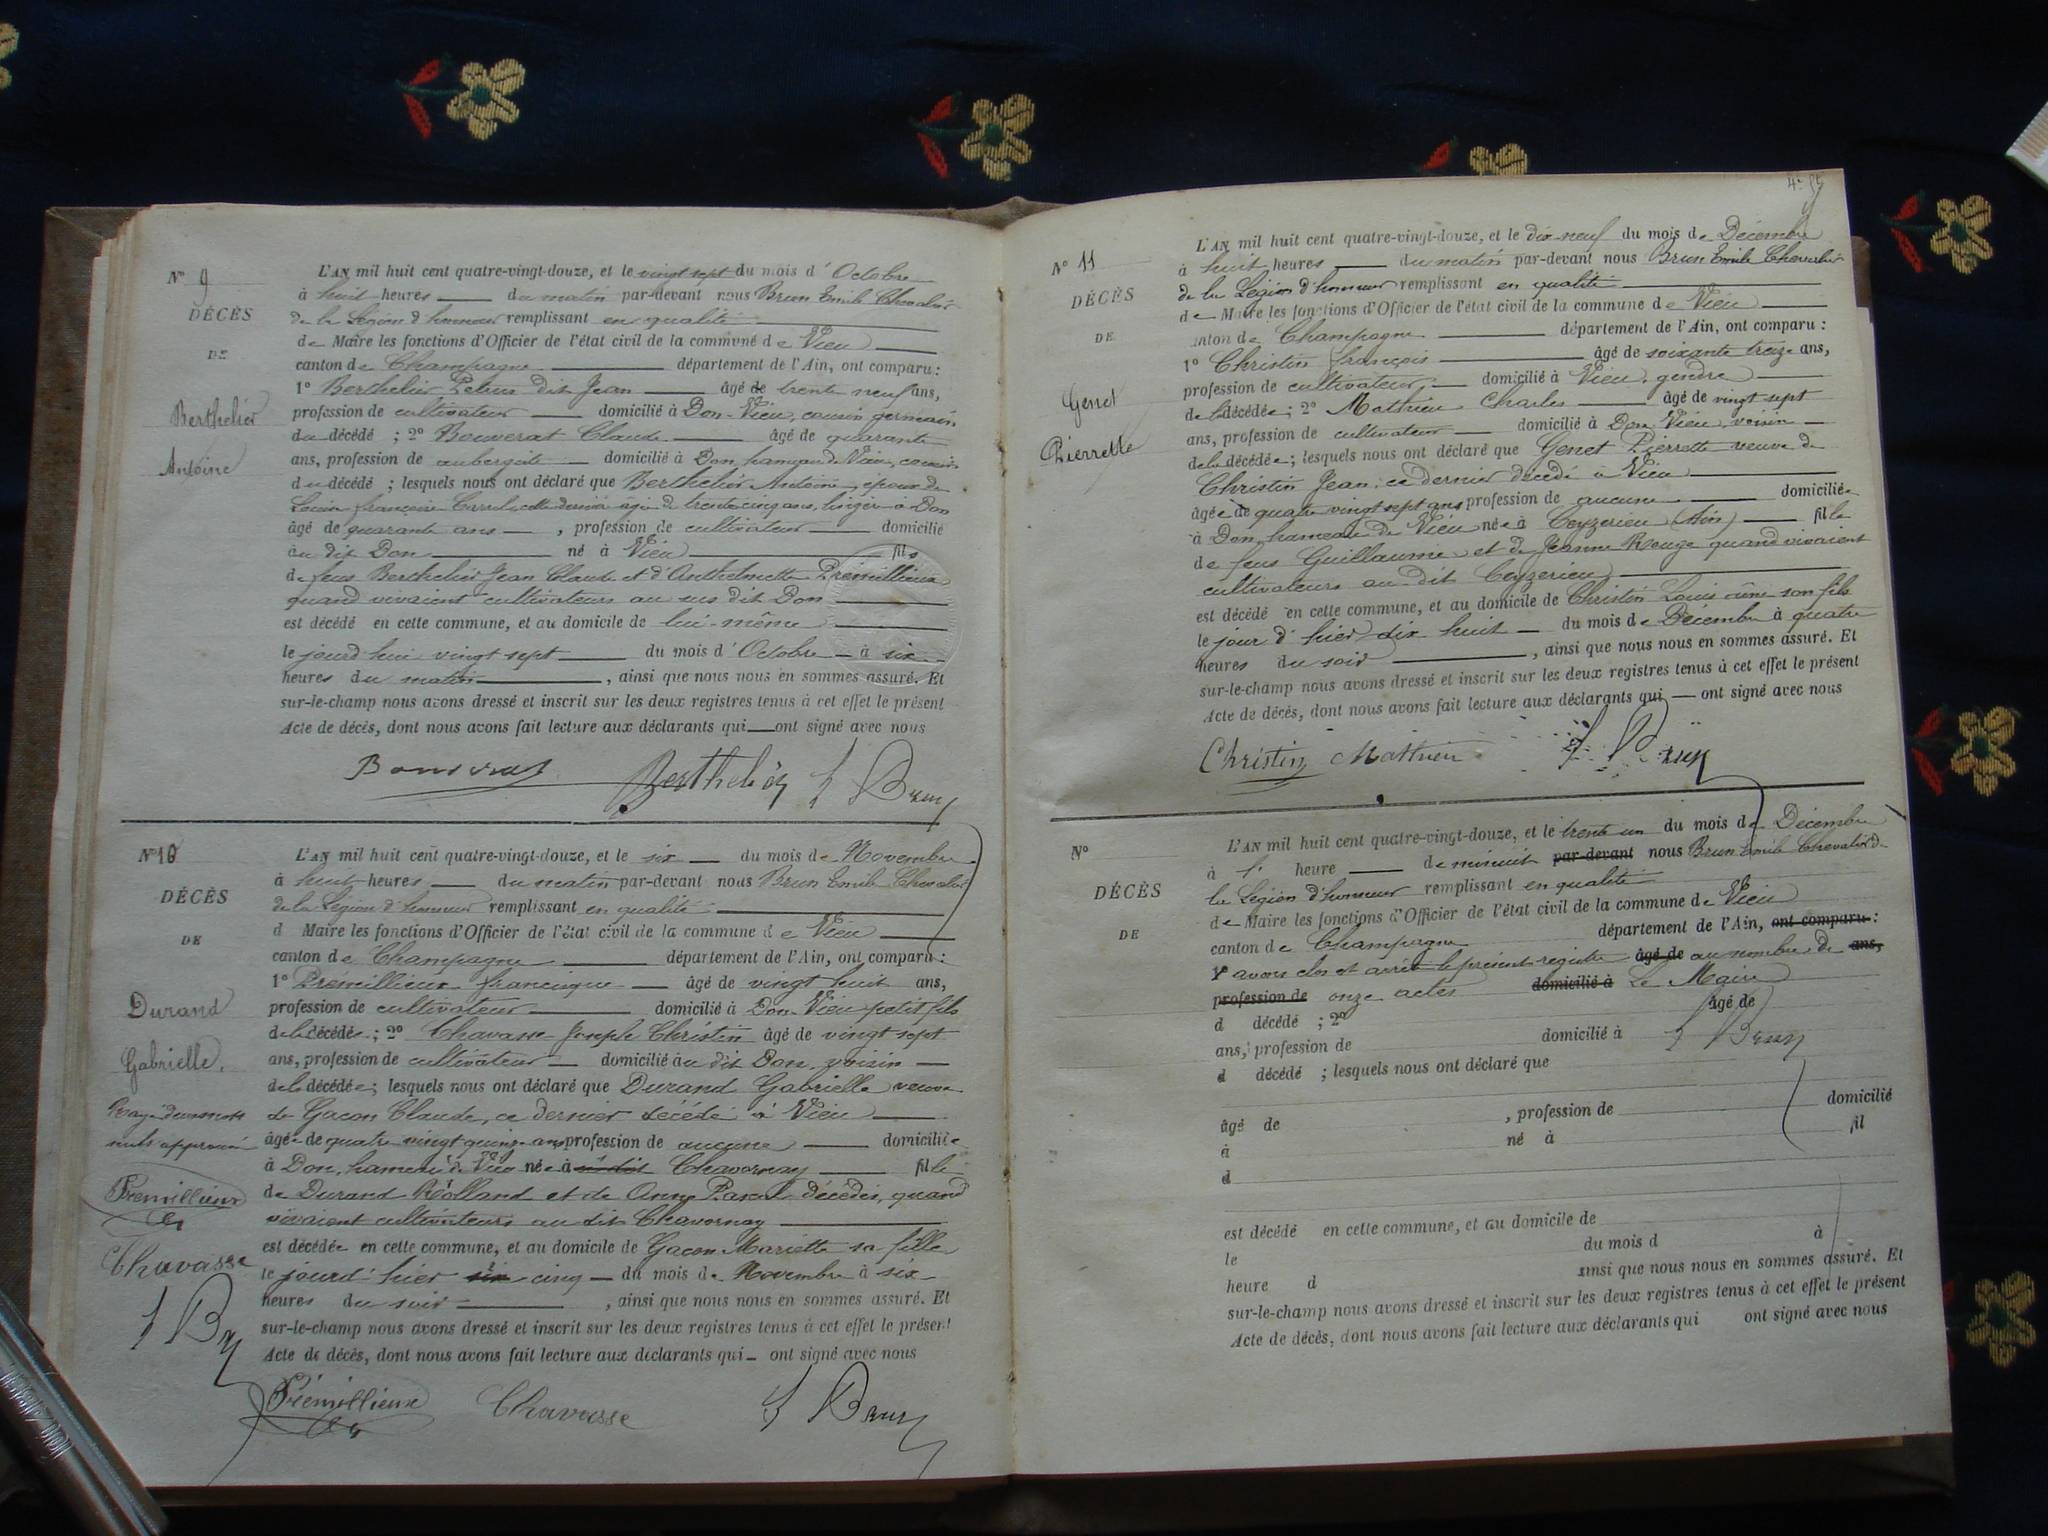 N° 9
DÉCÈS
DE
Berthelier
Antoine
L'AN mil huit cent quatre-vingt-douze, et le vingt sept du mois d'Octobre
à huit heures du matin par-devant nous Brun Emile Chevalier
de la Légion d'honneur remplissant en qualité
de Maire les fonctions d'Officier de l'état civil de la commune de Vieu
canton de Champagne département de l'Ain, ont comparu :
1° Berthelier dit Jean âgé de trente neuf ans,
profession de cultivateur domicilié à Don-Vieu, cousin germain
du décédé ; 2° Bouverat Claude âgé de quarante
ans, profession de aubergiste domicilié à Don, hameau de Vieu, cousin
du décédé ; lesquels nous ont déclaré que Berthelier Antoine, époux de
françoise cette dernière âgée de trente cinq ans, lingère à Don
âgé de quarante ans , profession de cultivateur domicilié
au dit Don né à Vieu fils
de feus Berthelier Jean Claude et d'Anthelmette Prémillieux
quand vivaient cultivateurs au sus dit Don
est décédé en cette commune, et au domicile de lui-même
le jourd'hui vingt sept du mois d'Octobre à six
heures du matin , ainsi que nous nous en sommes assuré. Et
sur-le-champ nous avons dressé et inscrit sur les deux registres tenus à cet effet le présent
Acte de décès, dont nous avons fait lecture aux déclarants qui ont signé avec nous
Bouverat Berthelier Brun
N° 10
DÉCÈS
DE
Durand
Gabrielle.
Rayé deux mots
nuls approuvé
Prémillieux
Chavasse
Brun
L'AN mil huit cent quatre-vingt-douze, et le six du mois de Novembre
à huit heures du matin par-devant nous Brun Emile Chevalier
de la Légion d'honneur remplissant en qualité
d Maire les fonctions d'Officier de l'état civil de la commune de Vieu
canton de Champagne département de l'Ain, ont comparu :
1° Prémillieux francisque âgé de vingt huit ans,
profession de cultivateur domicilié à Don-Vieu petit fils
de la décédée ; 2° Chavasse Joseph Christin âgé de vingt sept
ans, profession de cultivateur domicilié au dit Don, voisin
de la décédée ; lesquels nous ont déclaré que Durand Gabrielle veuve
de Gacon Claude, ce dernier décédé à Vieu
âgée de quatre vingt quinze ans profession de aucune domiciliée
à Don, hameau de Vieu née à au dit Chavornay fille
de Durand Rolland et de Anne Pascal décédés, quand
vivaient cultivateurs au dit Chavornay
est décédée en cette commune, et au domicile de Gacon Mariette sa fille
le jour d'hier six cinq du mois de Novembre à six
heures du soir , ainsi que nous nous en sommes assuré. Et
sur-le-champ nous avons dressé et inscrit sur les deux registres tenus à cet effet le présent
Acte de décès, dont nous avons fait lecture aux déclarants qui ont signé avec nous
Prémillieux Chavasse Brun
N° 11
DÉCÈS
DE
Genet
Pierrette
L'AN mil huit cent quatre-vingt-douze, et le dix-neuf du mois de Décembre
à huit heures du matin par-devant nous Brun Emile Chevalier
de la Légion d'honneur remplissant en qualité
de Maire les fonctions d'Officier de l'état civil de la commune de Vieu
canton de Champagne département de l'Ain, ont comparu :
1° Christin françois âgé de soixante treize ans,
profession de cultivateur domicilié à Vieu, gendre
de la décédée ; 2° Mathieu Charles âgé de vingt sept
ans, profession de cultivateur domicilié à Don Vieu, voisin
de la décédée ; lesquels nous ont déclaré que Genet Pierrette veuve de
Christin Jean, ce dernier décédé à Vieu
âgée de quatre vingt sept ans profession de aucune domiciliée
à Don hameau de Vieu née à Ceyzerieu (Ain) fille
de feus Guillaume et de Jeanne Rouge quand vivaient
cultivateurs au dit Ceyzerieu
est décédé en cette commune, et au domicile de Christin Louis aîné son fils
le jour d'hier dix huit du mois de Décembre à quatre
heures du soir , ainsi que nous nous en sommes assuré. Et
sur-le-champ nous avons dressé et inscrit sur les deux registres tenus à cet effet le présent
Acte de décès, dont nous avons fait lecture aux déclarants qui ont signé avec nous
Christin Mathieu Brun
N°
DÉCÈS
DE
L'AN mil huit cent quatre-vingt-douze, et le trente un du mois de Décembre
à heure de minuit par-devant nous Brun Emile Chevalier de
la Légion d'honneur remplissant en qualité
de Maire les fonctions d'Officier de l'état civil de la commune de Vieu
canton de Champagne département de l'Ain, ont comparu :
avons clos et arrêté le présent registre âgé de au nombre de ans,
profession de onze actes domicilié à Le Maire
d décédé ; 2° âgé de
ans, profession de domicilié à Brun
d décédé ; lesquels nous ont déclaré que
âgé de , profession de domicilié
à né à fil
d
est décédé en cette commune, et au domicile de
le du mois d à
heure d ainsi que nous nous en sommes assuré. Et
sur-le-champ nous avons dressé et inscrit sur les deux registres tenus à cet effet le présent
Acte de décès, dont nous avons fait lecture aux déclarants qui ont signé avec nous